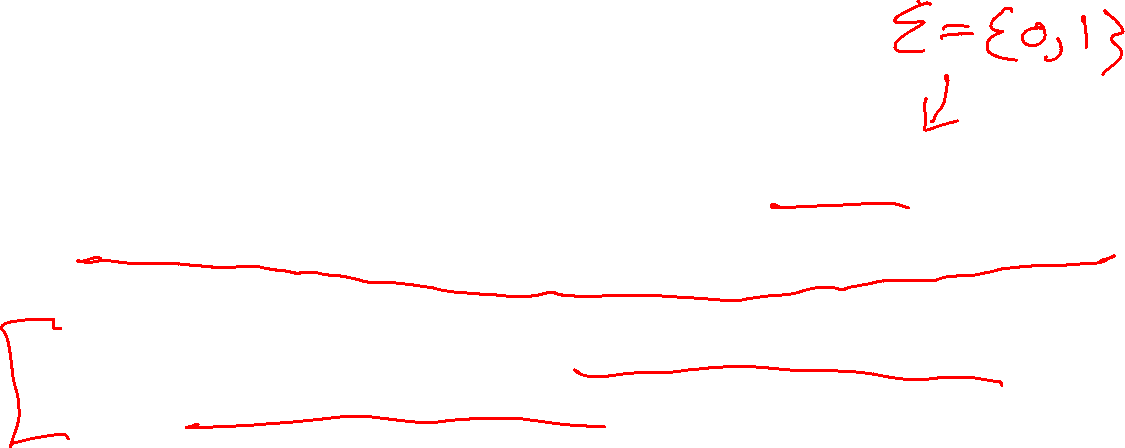 Σ = {0, 1}